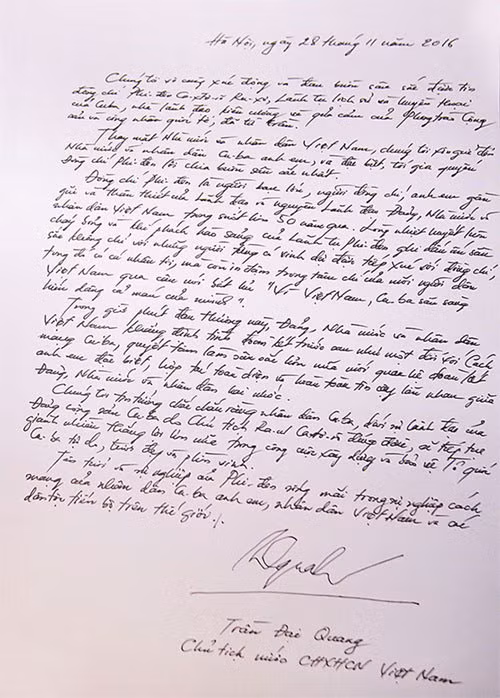 Hà Nội, ngày 28 tháng 11 năm 2016
Chúng tôi vô cùng xúc động và đau buồn sâu sắc được tin
đồng chí Phi-đen Ca-xtơ-rô Ru-xơ, Lãnh tụ lịch sử và huyền thoại
của Cuba, nhà lãnh đạo kiên cường và quả cảm của Phong trào Cộng
sản và công nhân quốc tế, đã từ trần.
Thay mặt Nhà nước và nhân dân Việt Nam, chúng tôi xin gửi đến
Nhà nước và nhân dân Cu-ba anh em, và đặc biệt, tới gia quyến
Đồng chí Phi-đen lời chia buồn sâu sắc nhất.
Đồng chí Phi-đen là người bạn lớn, người đồng chí, anh em gần
gũi và thân thiết của Lãnh đạo và nguyên Lãnh đạo Đảng, Nhà nước và
nhân dân Việt Nam trong suốt hơn 50 năm qua. Lòng nhiệt huyết luôn
cháy bỏng và khí phách hào sảng của Lãnh tụ Phi-đen ghi dấu ấn sâu
sắc không chỉ với những người từng có vinh dự được tiếp xúc với đồng chí,
trong đó có cá nhân tôi, mà còn in đậm trong tâm chí của mỗi người dân
Việt Nam qua câu nói bất hủ "Vì Việt Nam, Cu-ba sẵn sàng
hiến dâng cả máu của mình".
Trong giờ phút đau thương này, Đảng, Nhà nước và nhân dân
Việt Nam khẳng định tình đoàn kết trước sau như một đối với Cách
mạng Cu-ba, quyết tâm làm sâu sắc hơn nữa mối quan hệ đoàn kết
anh em đặc biệt, hợp tác toàn diện và hoàn toàn tin cậy lẫn nhau giữa
Đảng, Nhà nước và nhân dân hai nước.
Chúng tôi tin tưởng chắc chắn rằng nhân dân Cu-ba, dưới sự lãnh đạo của
Đảng cộng sản Cu-ba do Chủ tịch Ra-un Ca-xtơ-rô đứng đầu, sẽ tiếp tục
giành nhiều thắng lợi lớn nữa trong công cuộc xây dựng và bảo vệ Tổ quốc
Cu-ba tự do, tươi đẹp và phồn vinh.
Tên tuổi và sự nghiệp của Phi-đen sống mãi trong sự nghiệp cách
mạng của nhân dân Cu-ba anh em, nhân dân Việt Nam và các
dân tộc tiến bộ trên thế giới./.
Trần Đại Quang
Chủ tịch nước CHXHCN Việt Nam